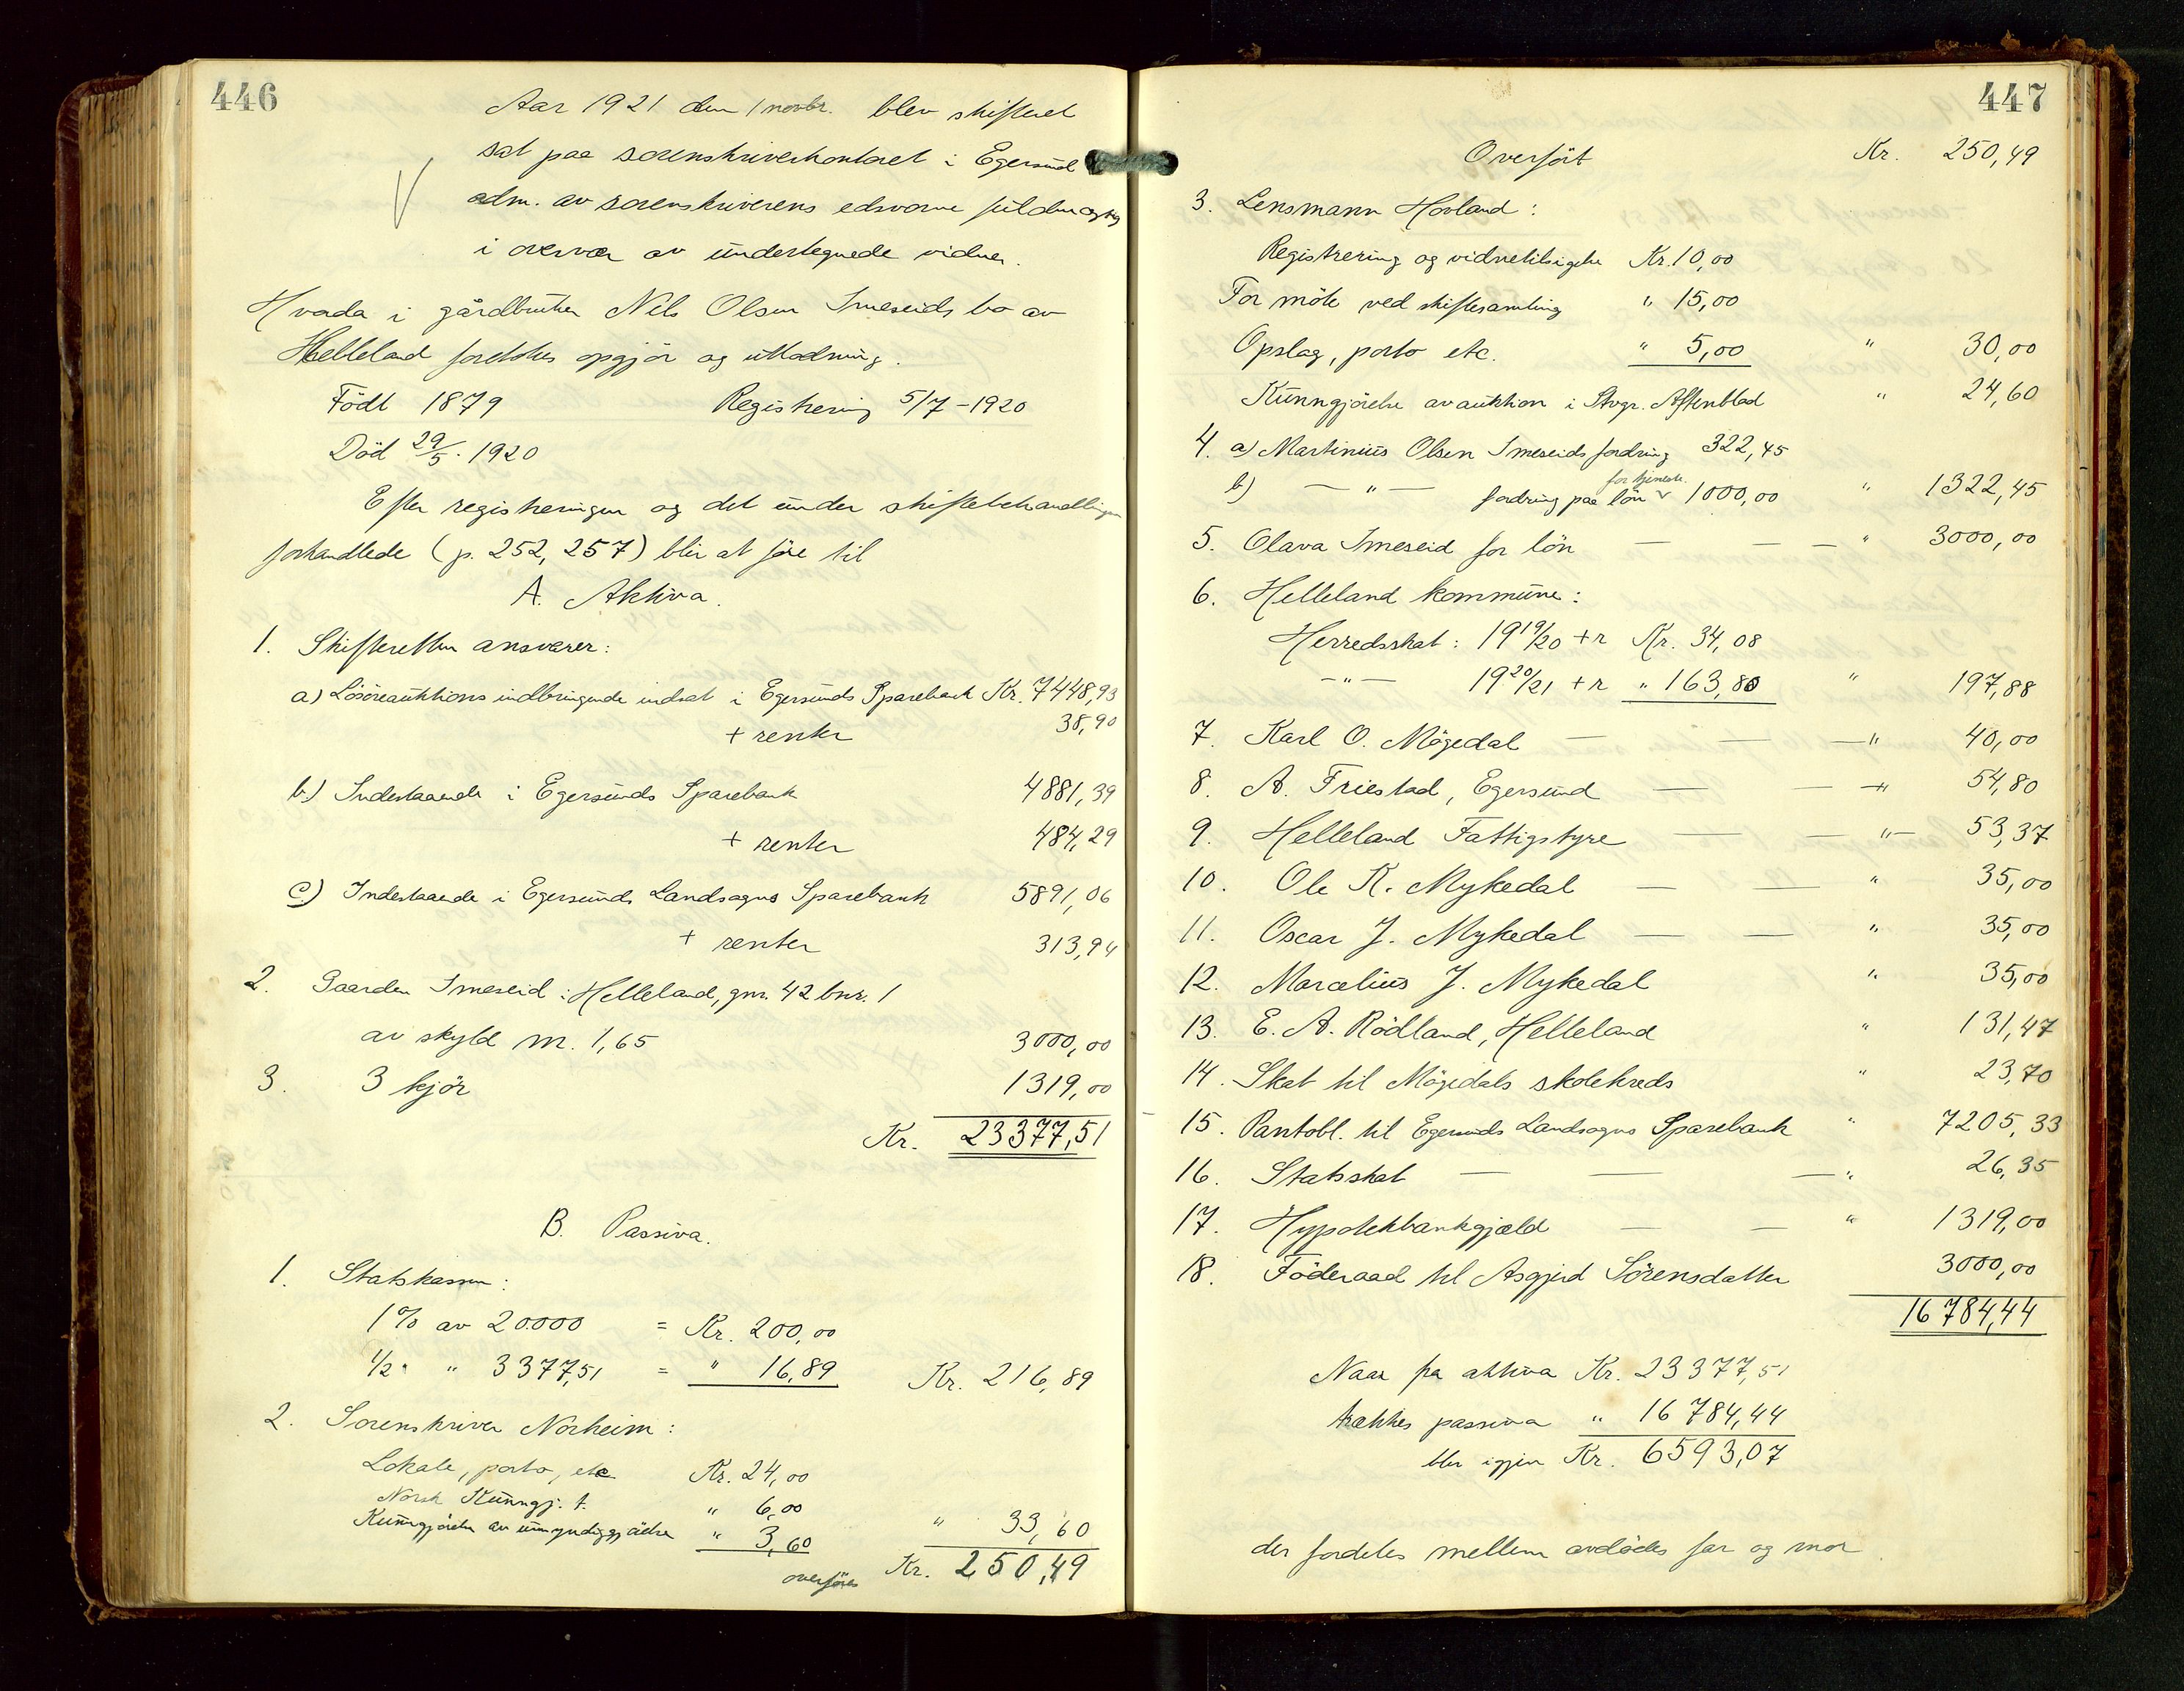 446
Aar 1921 den 1 novbr. blev skifteret
sat paa sorenskriverkontoret i Egersund
adm. av sorenskriverens edsvorne fuldmægtig
i overvær av undertegnede vidner.
Hvorda i gårdbruker Nils Olsen Imeseids bo av
Helleland foretokes opgjör og utlodning.
Födt 1879 Registrering 5/7 - 1920
Död 29/5. 1920
Efter registreringen og det under skiftebehandlingen
forhandlede (p. 252, 257) blir at före til
A. Aktiva.
1. Skifteretten ansvarer:
a) Lösöreauktions indbringende indsat i Egersunds Sparebank Kr. 7448,93
+ renter 38,90
b) Indestaaende i Egersunds Sparebank 4881,39
+ renter 484,29
c) Indestaaende i Egersunds Landsogns Sparebank 5891,06
+ renter 313,94
2. Gaarden Imeseid i Helleland, gnr. 42 bnr. 1
av skyld m. 1,65 3000,00
3. 3 kjör 1319,00
Kr. 23377,51
B. Passiva.
1. Statskassen:
1% av 20000 = Kr. 200,00
1/2 " " 3377,51 = " 16,89 Kr. 216,89
2. Sorenskriver Norheim:
Lokale, porto, etc Kr. 24,00
Norsk Kunngj. t. " 6,00
Kunngjörelse av umyndiggjörelse " 3,60 " 33,60
overföres Kr. 250,49
447
Overfört Kr. 250,49
3. Lensmann Hovland:
Registrering og vidnetilsigelse Kr. 10,00
For möte ved skiftesamling " 15,00
Opslag, porto etc. " 5,00 " 30,00
Kunngjörelse av auktion i Stvgr. Aftenblad " 24,60
4. a) Martinius Olsen Imeseids fordring 322,45
for tjeneste
b) — " — fordring paa lön v 1000,00 " 1322,45
5. Olava Imeseid for lön — — — " 3000,00
6. Helleland kommune:
Herredsskat: 1919/20 + r Kr. 34,08
— " — 1920/21 + r " 163,80 " 197,88
7. Karl O. Mögedal — — — " 40,00
8. A. Friestad, Egersund — — " 54,80
9. Helleland Fattigstyre — — " — 53,37
10. Ole K. Mykedal — — " 35,00
11. Oscar J. Mykedal — — " 35,00
12. Marcelius J. Mykedal " 35,00
13. E. A. Rödland, Helleland " 131,47
14. Skat til Mögedals skolekreds " 23,70
15. Pantobl. til Egersunds Landsogns Sparebank " 7205,33
16. Statsskat — — — " 26,35
17. Hypotekbankgjæld — — " 1319,00
18. Föderaad til Asgjerd Sörensdatter 3000,00
16784,44
Naar fra aktiva Kr. 23377,51
trækkes passiva " 16784,44
blir igjen Kr. 6593,07
der fordeles mellem avdödes far og mor.